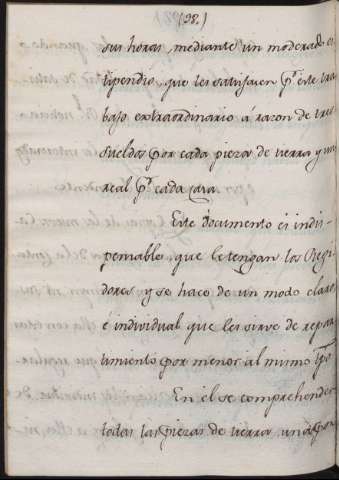 (98.)
sus horas, mediante un moderado es
tipendio, que les satisfacen p.r este tra
bajo extraordinario á razon de tres
sueldos por cada pieza de tierra y un
real p.r cada casa.
Este documento es indis
pensable, que le tengan los Regi
dores y se hace de un modo claro
é individual que les sirve de repar
timiento por menor al mismo tpõ
En el se comprehenden
todas las piezas de tierra, una por